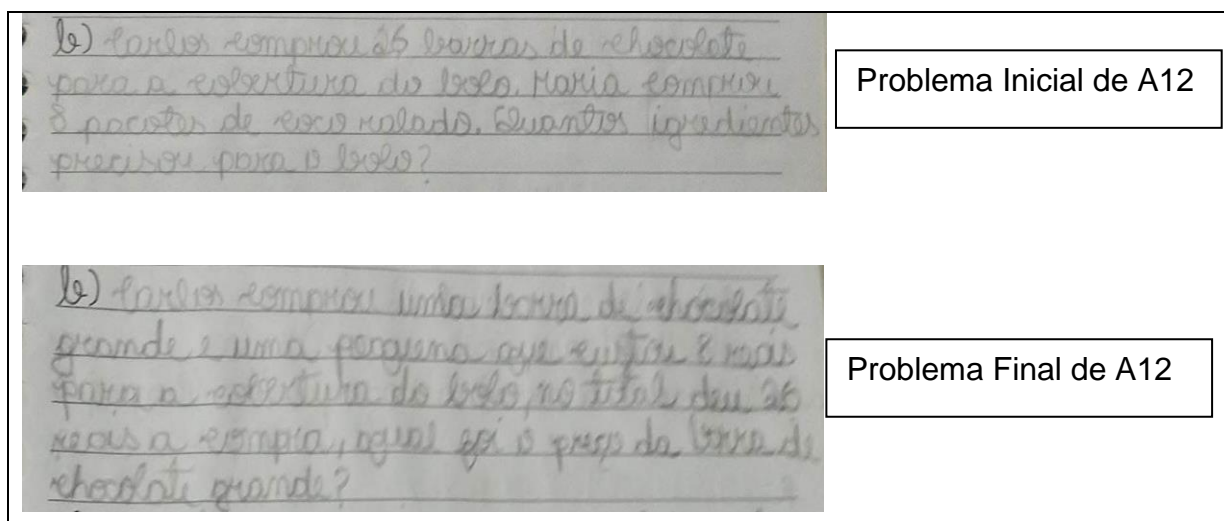 b) Carlos comprou 26 barras de chocolate
para a cobertura do bolo. Maria comprou
8 pacotes de coco ralado. Quantos igredientes
precisou para o bolo?
Problema Inicial de A12
b) Carlos comprou uma barra de chocolate
grande e uma perquena que custou 8 reais
para a cobertura do bolo, no total deu 26
reais a compra, qual foi o preço da barra de
chocolate grande?
Problema Final de A12